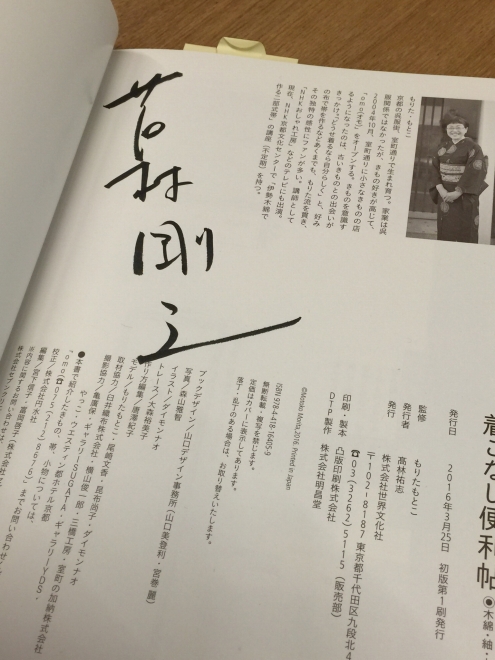 もりた・もとこ
京都の呉服街、室町通りで生まれ育つ。家業は呉
服関係ではなかったが、きもの好きが高じて、
2004年10月、室町通りに小さなきものの店
「omo(オモ)」をオープンする。きものを意識す
るようになったのは、古いきものとの出会いが
きっかけ。「どうせ着るなら自分らしく」と、好み
の布で帯を作るなどあくまでも、もりた流を貫き、
その独特の感性にファンが多い。講師として
「NHKおしゃれ工房」などのテレビにも出演。
現在、NHK京都文化センターで、伊勢木綿で
作る「二部式帯」の講座(不定期)を持つ。
剛
着こなし便利帖
◉木綿・紬・
発行日 2016年3月25日 初版第1刷発行
監修 もりたもとこ
発行者 髙林祐志
発行 株式会社世界文化社
〒102-8187 東京都千代田区九段北4
☎03(3262)5115(販売部)
印刷・製本 凸版印刷株式会社
DTP製作 株式会社明昌堂
©Motoko Morita, 2016. Printed in Japan
ISBN 978-4-418-16405-9
禁無断転載・複写を禁じます。
定価はカバーに表示してあります。
落丁・乱丁のある場合は、お取り替えいたします。
ブックデザイン/山口デザイン事務所(山口美登利・宮巻麗)
写真/森山雅智
イラスト/ダイモンナオ
トレース/大森裕美子
作り方編集/唐澤紀子
モデル/もりたもとこ
取材協力/尾崎文香・昆布尚子・ダイモンナオ
撮影協力/臼井織布株式会社 横山俊一郎・三橋工房・室町の加納株式会社
●本書で紹介したきもの・帯、小物については、
omo(☎075
校正/株式会社円水社
編集/宮下信子